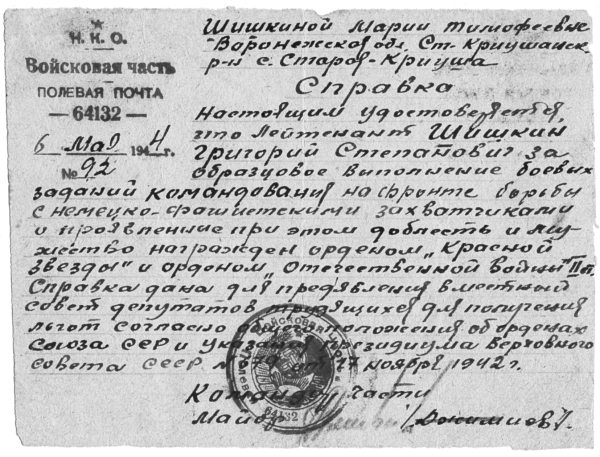 Н. К. О.
Войсковая часть
ПОЛЕВАЯ ПОЧТА
— 64132 —
6 мая 1944 г.
№ 92
Шишкиной Марии Тимофеевне
Воронежской обл. Ст-Криушанск
р-н с. Старая-Криуша
Справка
Настоящим удостоверяется,
что Лейтенант Шишкин
Григорий Степанович за
образцовое выполнение боевых
заданий командования на фронте борьбы
с немецко-фашистскими захватчиками
и проявленные при этом доблесть и му-
жество награжден орденом „Красной
Звезды" и орденом „Отечественной Войны" II ст.
Справка дана для предявления в местный
совет депутатов трудящихся для получения
льгот согласно положения об орденах
Союза ССР и указания президиума Верховного
совета СССР от 17 ноября 1942 г.
Командир части
Майор
64132